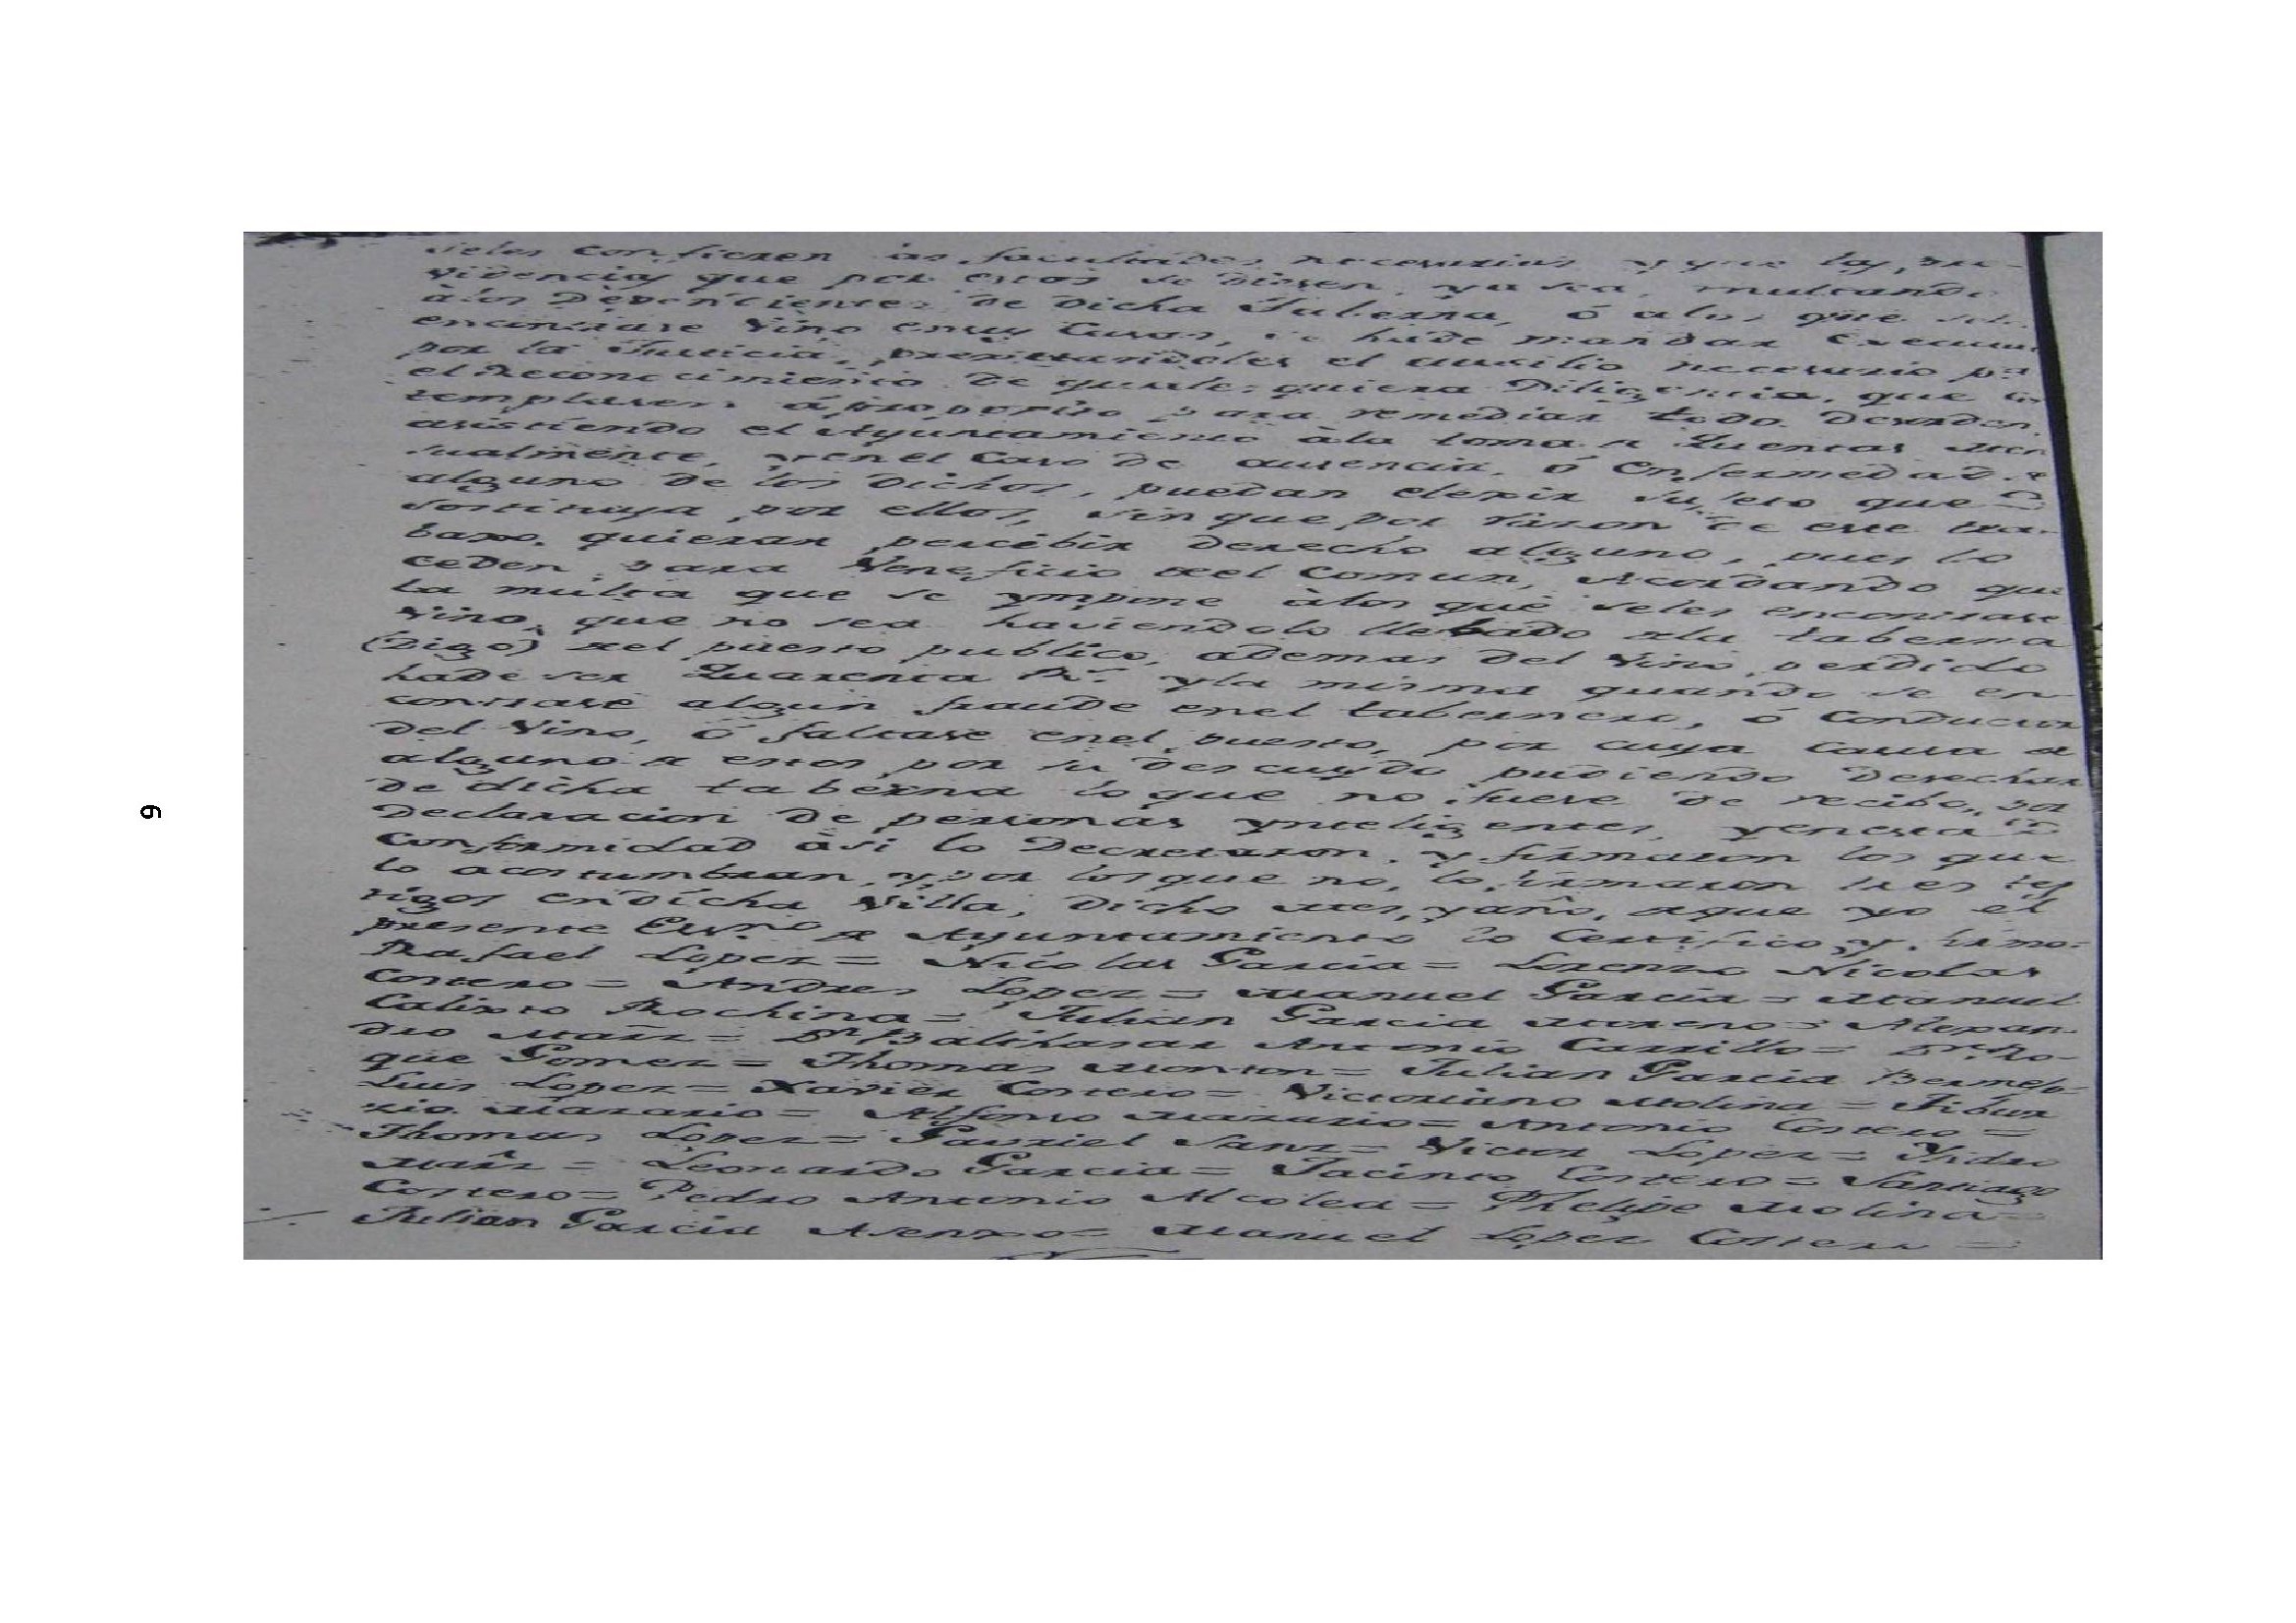 seles confieren las facultades necesarias y que las pro-
videncias que por estos se diesen, ya sea, multando
à los Dependientes de Dicha Taberna, ó alos que seles
encontrase Vino en sus Casas, se hà de mandar Execu
por la Justicia, prestandoles el auxilio necesario pª
el Reconocimiento de quales quiera Diligencia, que con
templasen àproposito para remediar todo Desorden
asistiendo el Ayuntamiento àla toma de Quentas men
sualmente, y en el Caso de ausencia, ó Enfermedad de
alguno de los Dichos, puedan elexir sujeto que
sostituya por ellos, sin que por razon de este tra-
baxo, quieran percibir Derecho alguno, pues lo
ceden para Veneficio del Comun, Acordando que
la multa que se ympone àlos que seles encontrase
Vino, que no sea haviendolo llebado dela taberna
(Digo) del puesto publico, ademas del Vino perdido
hade ser Quarenta Rs. y la misma quando se en-
contrase algun fraude enel tabernero, ó Conductor
del Vino, ó faltase enel puesto, por cuya causa de
alguno de estos por su descuydo pudiendo Desechar
de dicha taberna lo que no fuese de recibo, por
Declaracion de personas ynteligentes, y en esta
Conformidad àsi lo Decretaron, y firmaron los que
lo acostumbran, y por los que no, lo firmaron tres tes
tigos en dicha Villa, Dicho mes, y año, de que yo el
presente Essno de Ayuntamiento lo Certifico, y firmo=
Rafael Lopez= Nicolas Garcia= Lorenzo Nicolas
Costero= Andres Lopez= Manuel Garcia= Manuel
Calixto Rochina= Julian Garcia Moreno= Alexan-
dro Mañz= Dn Balthasar Antonio Carrillo= Dn Ro-
que Gomez= Thomas Monton= Julian Garcia Bermejo=
Luis Lopez= Xavier Costero= Victoriano Molina= Tibur
zio Mazario= Alfonso Mazario= Antonio Costero=
Thomas Lopez= Gavriel Sanz= Victor Lopez= Ysidro
Mañz= Leonardo Garcia= Jacinto Costero= Santiago
Costero= Pedro Antonio Alcolea= Phelipe Molina=
Julian Garcia Asenxo= Manuel Lopez Costero=
6